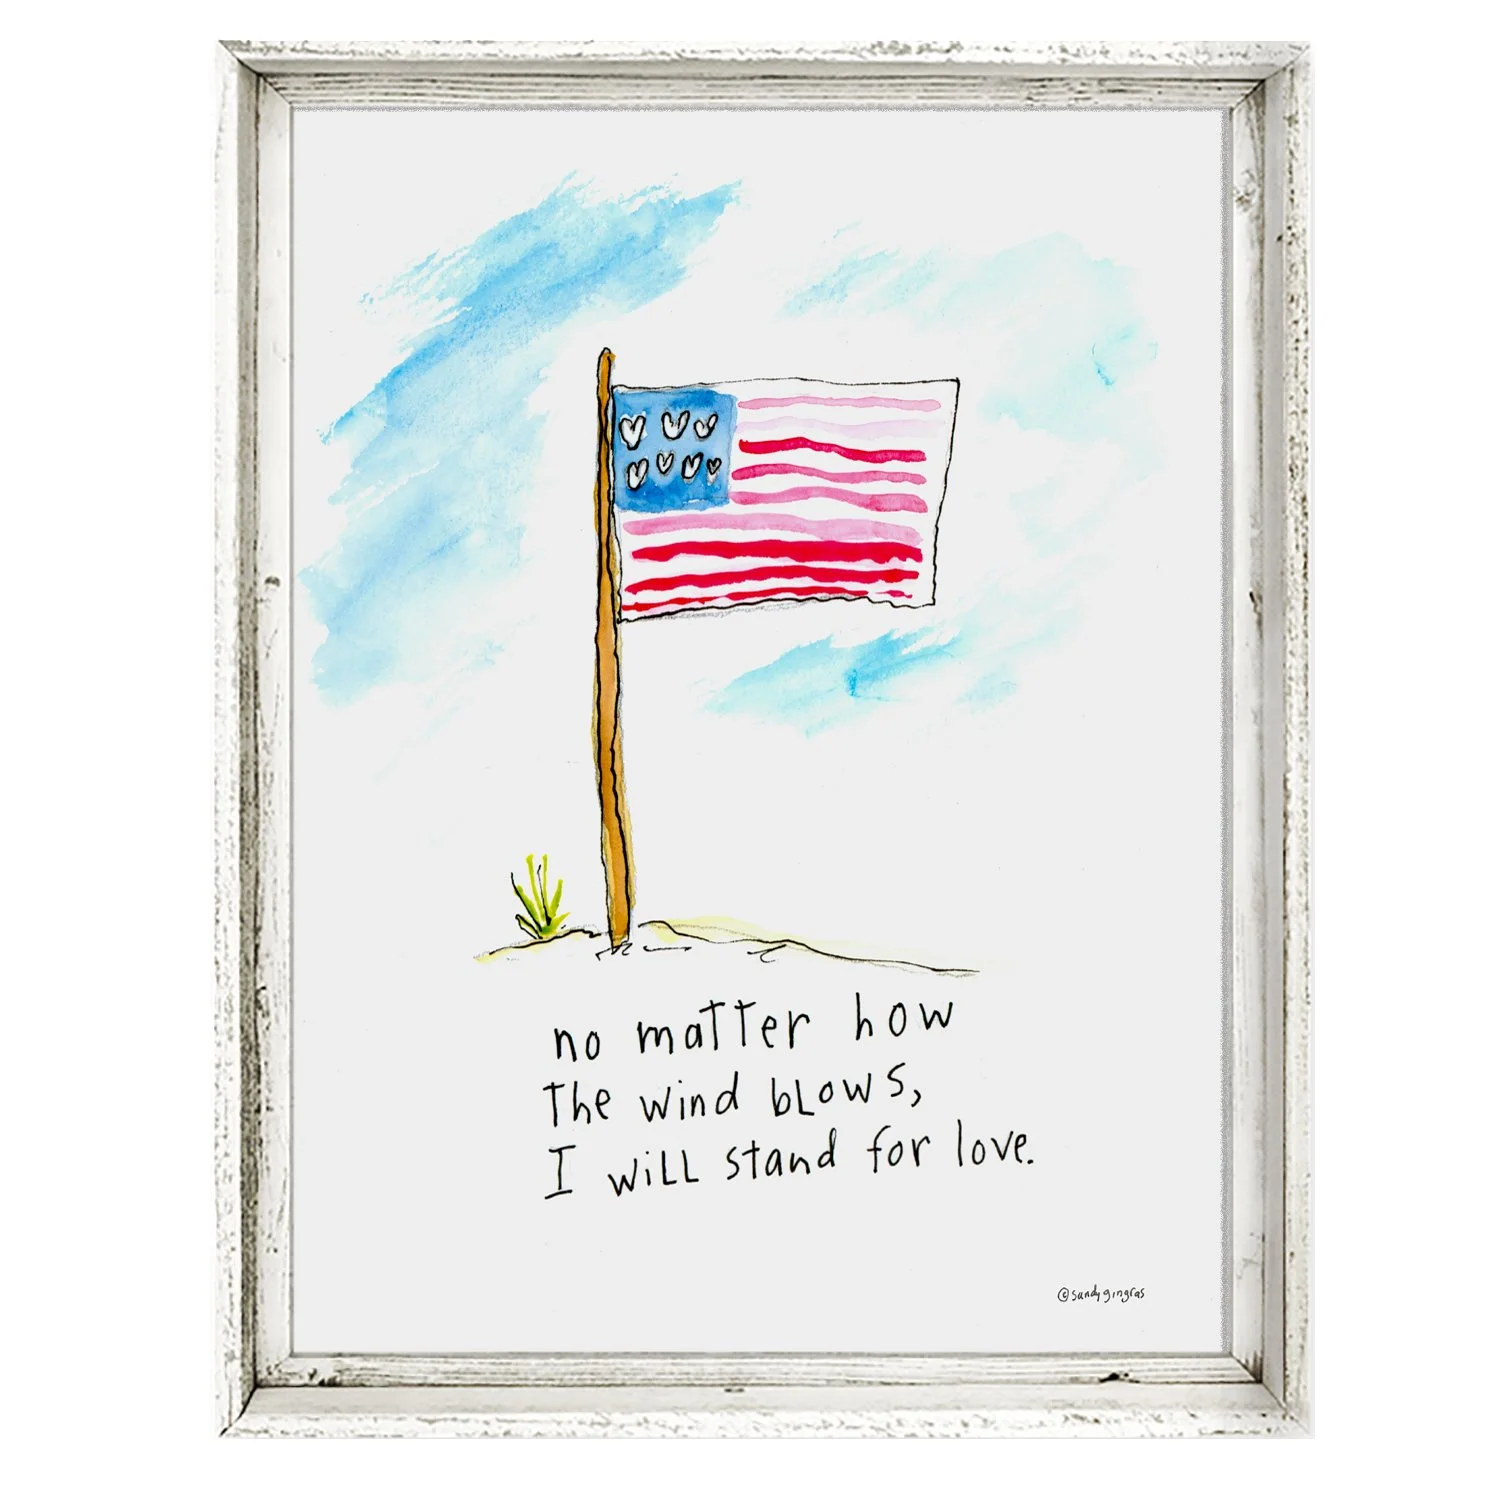 no matter how
the wind blows,
I will stand for love.
©sandygingras